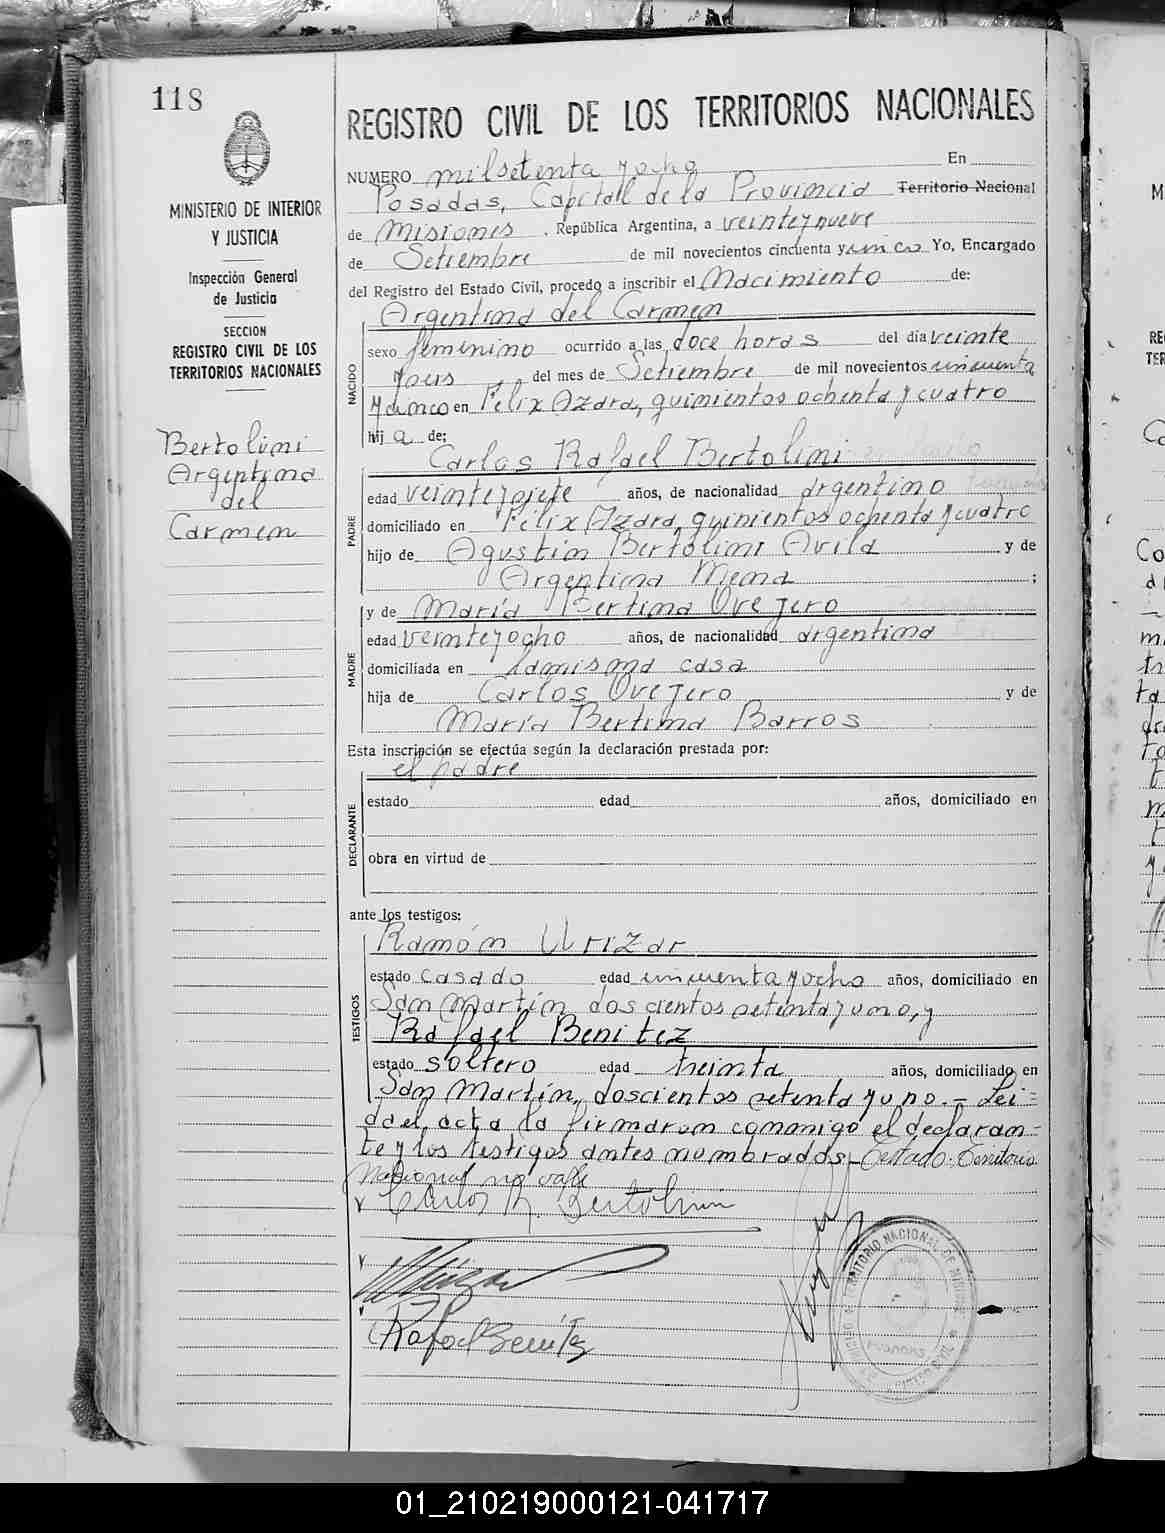 118
REGISTRO CIVIL DE LOS TERRITORIOS NACIONALES
MINISTERIO DE INTERIOR
Y JUSTICIA
Inspección General
de Justicia
SECCION
REGISTRO CIVIL DE LOS
TERRITORIOS NACIONALES
Bertolini
Argentina
del
Carmen
NUMERO mil setenta y ocho En
Posadas, Capital de la Provincia Territorio Nacional
de Misiones, República Argentina, a veintey nueve
de Setiembre de mil novecientos cincuenta y cinco Yo, Encargado
del Registro del Estado Civil, procedo a inscribir el Nacimiento de:
Argentina del Carmen
NACIDO
sexo femenino ocurrido a las doce horas del día veinte
y seis del mes de Setiembre de mil novecientos cincuenta
y cinco en Félix Azara, quinientos ochenta y cuatro
hij a de:
Carlos Rafael Bertolini
PADRE
edad veinteysiete años, de nacionalidad argentino
domiciliado en Félix Azara, quinientos ochenta y cuatro
hijo de Agustín Bertolini Avila y de
Argentina Mena ;
MADRE
y de María Bertina Ovejero
edad veinteyocho años, de nacionalidad argentina
domiciliada en la misma casa
hija de Carlos Ovejero y de
María Bertina Barros
Esta inscripción se efectúa según la declaración prestada por:
el padre
DECLARANTE
estado edad años, domiciliado en
obra en virtud de
ante los testigos:
Ramón Urizar
TESTIGOS
estado casado edad cincuenta y ocho años, domiciliado en
San Martín doscientos setenta y uno, y
Rafael Benitez
estado soltero edad treinta años, domiciliado en
San Martín, doscientos setenta y uno.- Lei=
da el acta la firmaron conmigo el declaran-
te y los testigos antes nombrados.- Testado: Territorio
Nacional no vale
Carlos R. Bertolini
Rafael Benitez
TERRITORIO NACIONAL DE
POSADAS
01_210219000121-041717